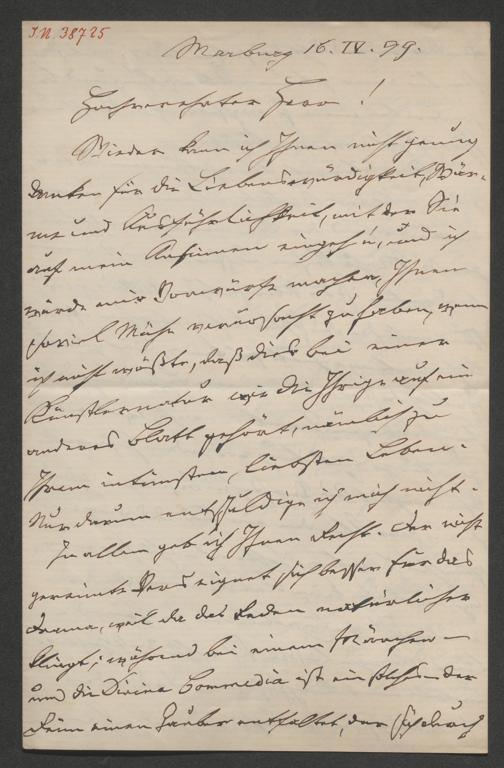 I.N. 38725
Marburg 16. IV. 99.
Hochverehrter Herr!
Wieder kann ich Ihnen nicht genug
danken für die Liebenswürdigkeit, Wär-
me und Ausführlichkeit, mit der Sie
auf mein Ansinnen eingeh'n, und ich
würde mir Vorwürfe machen, Ihnen
soviel Mühe verursacht zu haben, wenn
ich nicht wüßte, daß dies bei einer
Künstlernatur wie die Ihrige auf ein
anderes Blatt gehört, nämlich zu
Ihrem intimsten, liebsten Leben.
Nur darum entschuldige ich mich nicht.
In allem geb' ich Ihnen Recht. Der nicht
gereimte Vers eignet sich besser für das
Drama, weil da das Reden natürlicher
klingt; während bei einem Märchen –
und die Divina Commedia ist ein solches – der
Reim einen Zauber entfaltet, der sich durch